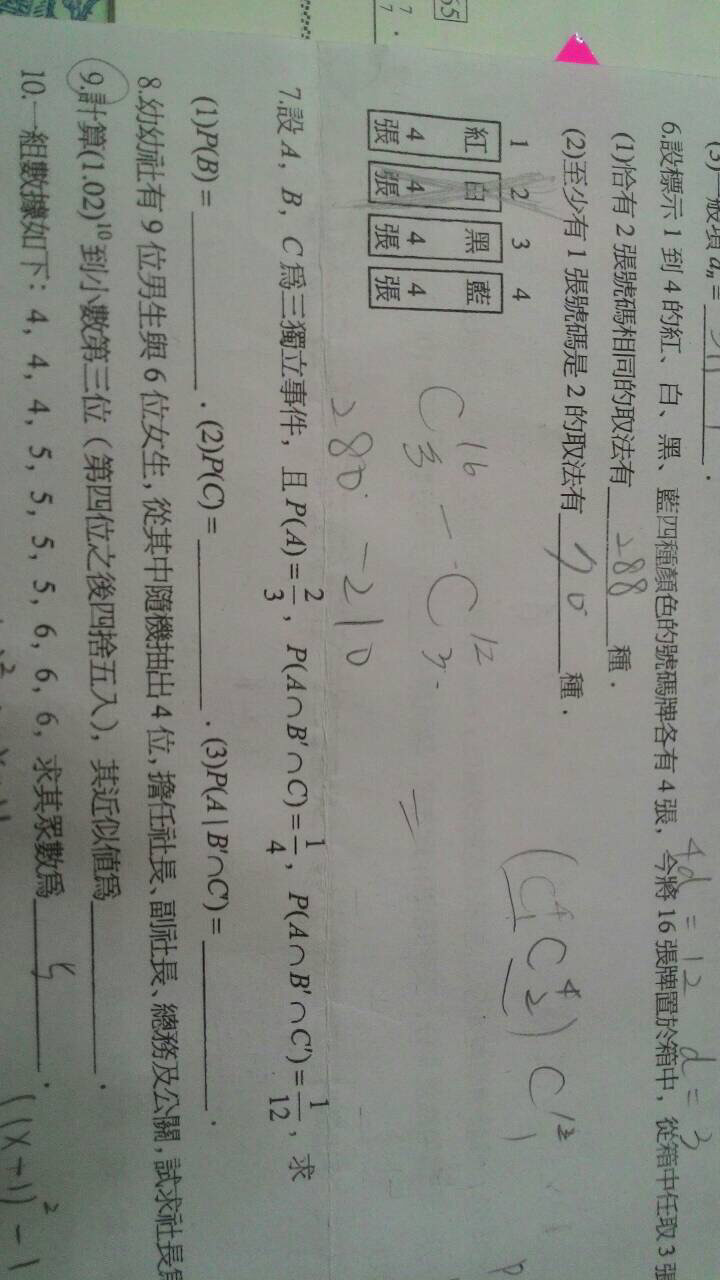 (3)一般項 aₙ =
6.設標示 1 到 4 的紅、白、黑、藍四種顏色的號碼牌各有 4 張，今將 16 張牌置於箱中，從箱中任取 3 張
4d = 12 d = 3
(1)恰有 2 張號碼相同的取法有 288 種．
(2)至少有 1 張號碼是 2 的取法有 70 種．
(C⁴₁ C⁴₂) C¹²₁
1 2 3 4
紅 白 黑 藍
4 4 4 4
張 張 張 張
C¹⁶₃ - C¹²₃ =
280 - 210
7.設 A，B，C 為三獨立事件，且 P(A)=2/3，P(A∩B′∩C)=1/4，P(A∩B′∩C′)=1/12，求
(1)P(B)= ．(2)P(C)= ．(3)P(A∣B′∩C′)= ．
8.幼幼社有 9 位男生與 6 位女生，從其中隨機抽出 4 位，擔任社長、副社長、總務及公關，試求社長
9.計算(1.02)¹⁰ 到小數第三位（第四位之後四捨五入），其近似值為 ．
10.一組數據如下：4，4，4，5，5，5，5，6，6，6，求其眾數為 5 ．
((x+1)² - 1